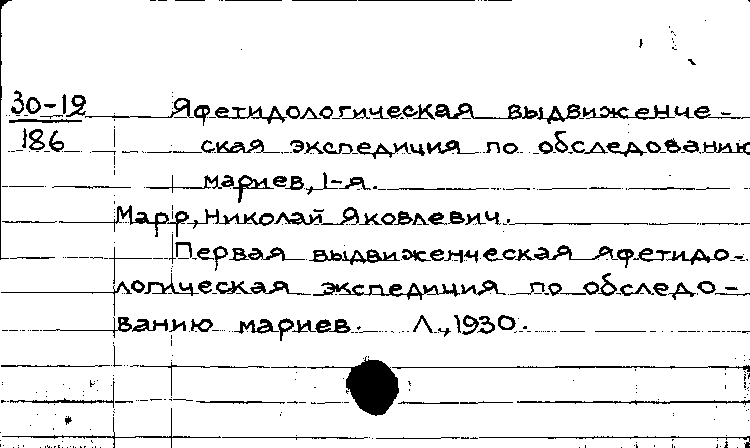 30-19 Яфетидологическая выдвиженче-
186 ская экспедиция по обследованию
мариев, I-я.
Марр, Николай Яковлевич.
Первая выдвиженческая яфетидо-
логическая экспедиция по обследо-
ванию мариев. Л., 1930.